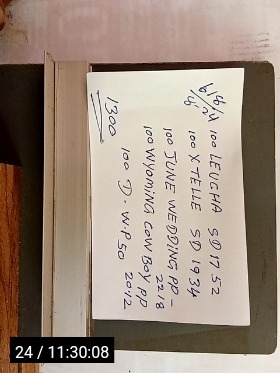 100 LEUGHA SD 1752
100 X TELLE SD 1934
100 JUNE WEDDING PD -
2218
100 WYOMING COWBOY PP
100 D. W. P. SO 2012
1300
24 / 11:30:08